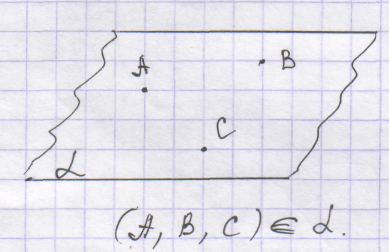 A
B
C
α
(A, B, C) ∈ α.